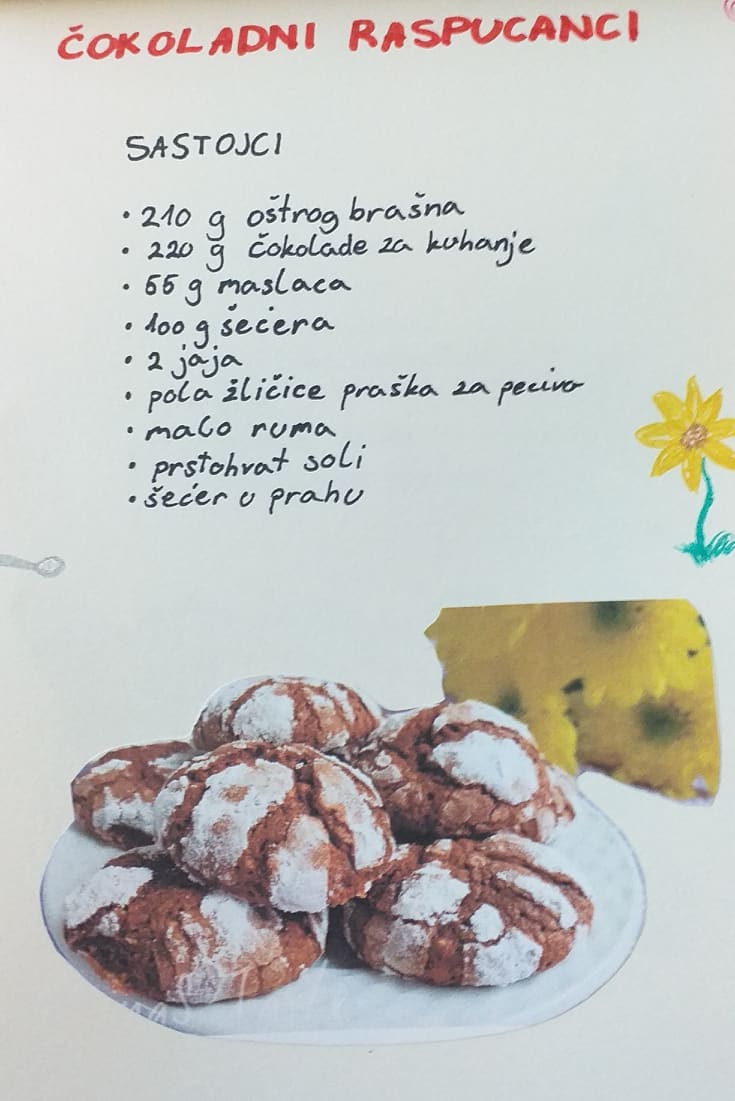 ČOKOLADNI RASPUCANCI
SASTOJCI
• 210 g oštrog brašna
• 220 g čokolade za kuhanje
• 55 g maslaca
• 100 g šećera
• 2 jaja
• pola žličice praška za pecivo
• malo ruma
• prstohvat soli
• šećer u prahu